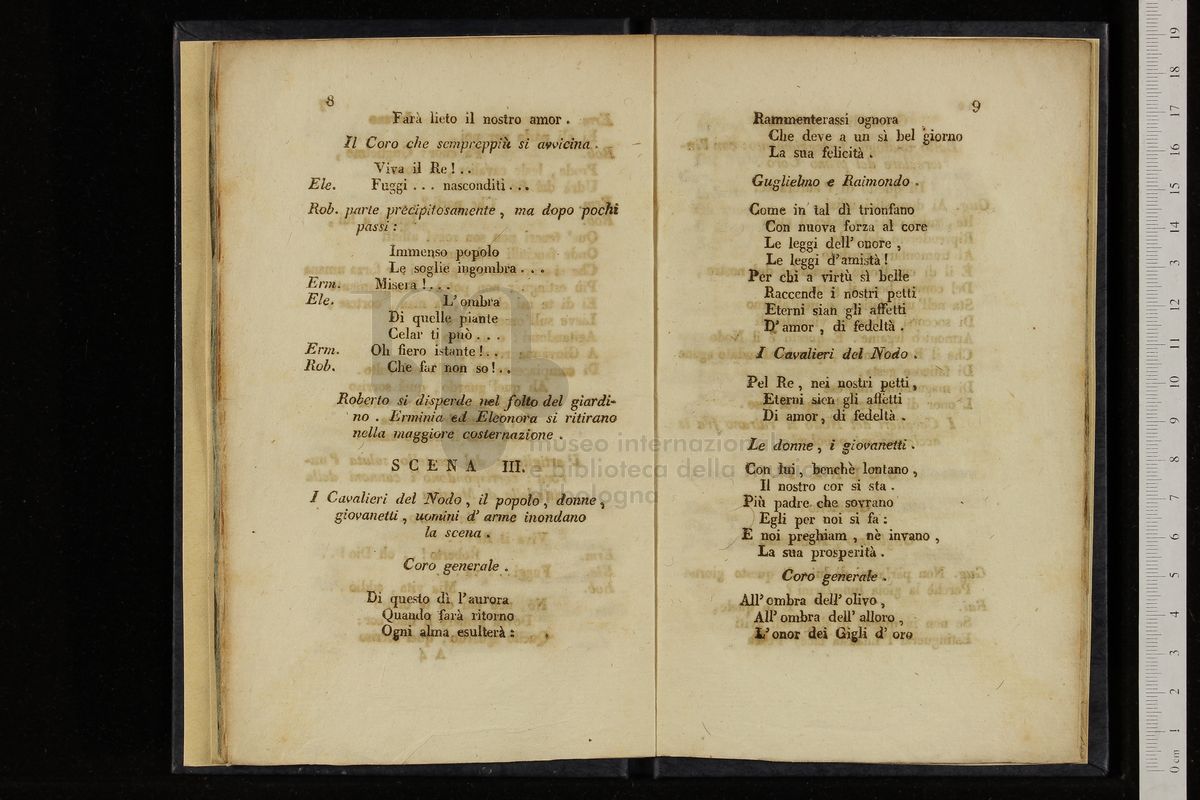 8
Farà lieto il nostro amor .
Il Coro che sempreppiù si avvicina .
Viva il Re ! . .
Ele. Fuggi . . . nasconditi . . .
Rob. parte precipitosamente , ma dopo pochi
passi :
Immenso popolo
Le soglie ingombra . . .
Erm. Misera ! . . .
Ele. L' ombra
Di quelle piante
Celar ti può . . .
Erm. Oh fiero istante ! . .
Rob. Che far non so ! . .
Roberto si disperde nel folto del giardi-
no . Erminia ed Eleonora si ritirano
nella maggiore costernazione .
SCENA III.
I Cavalieri del Nodo , il popolo , donne ,
giovanetti , uomini d' arme inondano
la scena .
Coro generale .
Di questo dì l'aurora
Quando farà ritorno
Ogni alma esulterà :
9
Rammenterassi ognora
Che deve a un sì bel giorno
La sua felicità .
Guglielmo e Raimondo .
Come in tal dì trionfano
Con nuova forza al core
Le leggi dell' onore ,
Le leggi d'amistà !
Per chi a virtù sì belle
Raccende i nostri petti
Eterni sian gli affetti
D'amor , di fedeltà .
I Cavalieri del Nodo .
Pel Re , nei nostri petti ,
Eterni sien gli affetti
Di amor , di fedeltà .
Le donne , i giovanetti .
Con lui , benchè lontano ,
Il nostro cor si sta .
Più padre che sovrano
Egli per noi si fa :
E noi preghiam , nè invano ,
La sua prosperità .
Coro generale .
All' ombra dell' olivo ,
All' ombra dell' alloro ,
L' onor dei Gigli d' oro
museo internazionale
biblioteca della
bologna
0 cm 1 2 3 4 5 6 7 8 9 10 11 12 13 14 15 16 17 18 19